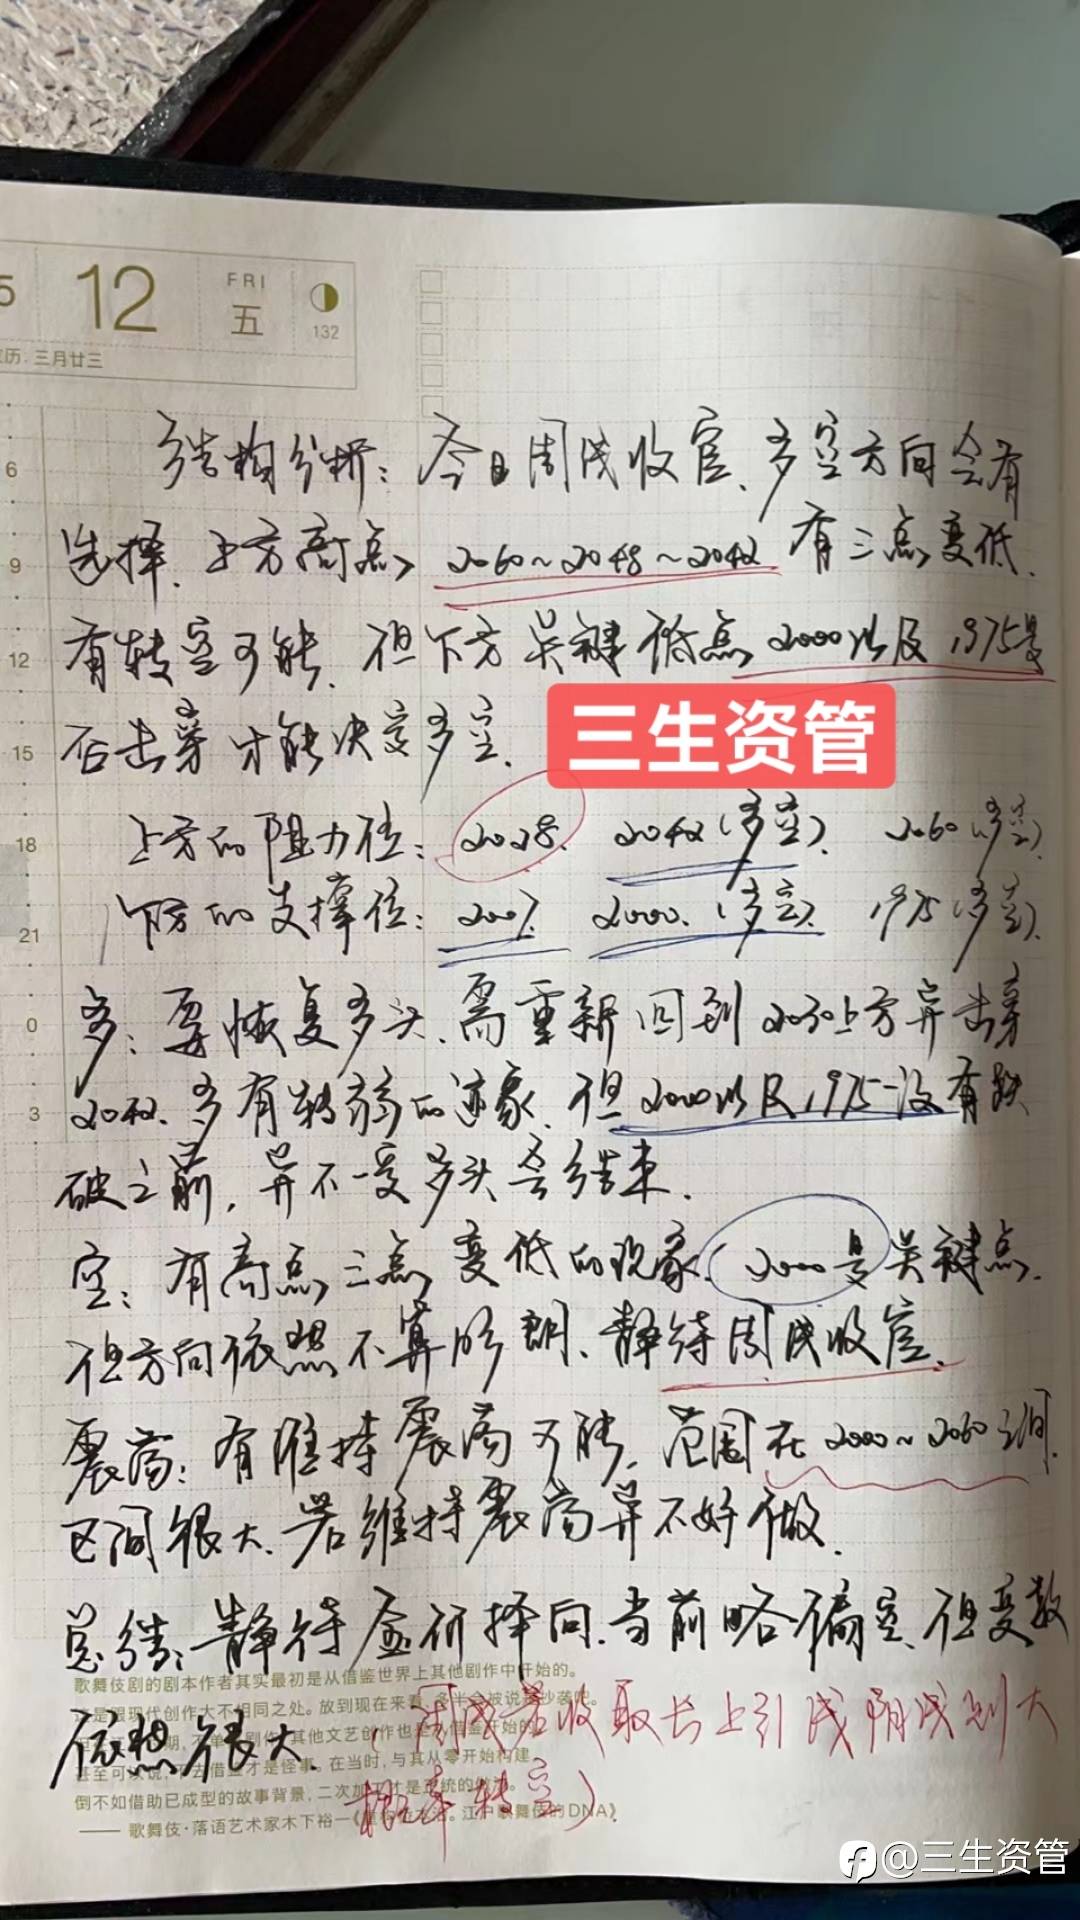 5 12 FRI 五 132
农历·三月廿三
结构分析：今日周线收官、多空方向会有
选择、上方高点 2060~2048~2042 有三点变低、
有转空可能、但下方关键低点 2000以及1975是
否击穿才能决定多空、
三生资管
上方的阻力位：2028、2042（多空）、2060（多空）、
下方的支撑位：2007、2000、（多空）、1975（多空）、
多：要恢复多头、需重新回到2030上方并击穿
2042、多有转弱的迹象、但2000以及1975没有跌
破之前，并不一定多头会结束、
空：有高点三点变低的现象、2000是关键点、
但方向依然不算明朗、静待周线收官、
震荡：有维持震荡可能、范围在2000~2060之间、
区间很大、若维持震荡并不好做、
总结：静待金价择向、当前略偏空、但变数
依然很大、
（周线若收取长上引线阴线则大
概率转空）
6
9
12
15
18
21
0
3
歌舞伎剧的剧本作者其实最初是从借鉴世界上其他剧作中开始的。
是跟现代创作大不相同之处。放到现在来看，多半会被说是抄袭吧。
甚至可以说，不去借鉴才是怪事。在当时，与其从零开始构建，
倒不如借助已成型的故事背景，二次加工才是正统的做法。
—— 歌舞伎·落语艺术家木下裕一《江户歌舞伎的DNA》
@三生资管